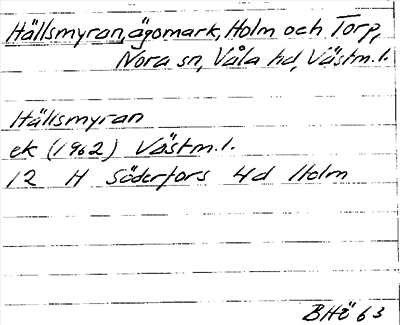 Hällsmyran, ägomark, Holm och Torp,
Nora sn, Våla hd, Västm.l.
Hällsmyran
ek (1962) Västm.l.
12 H Söderfors 4d Holm
BHÖ 63